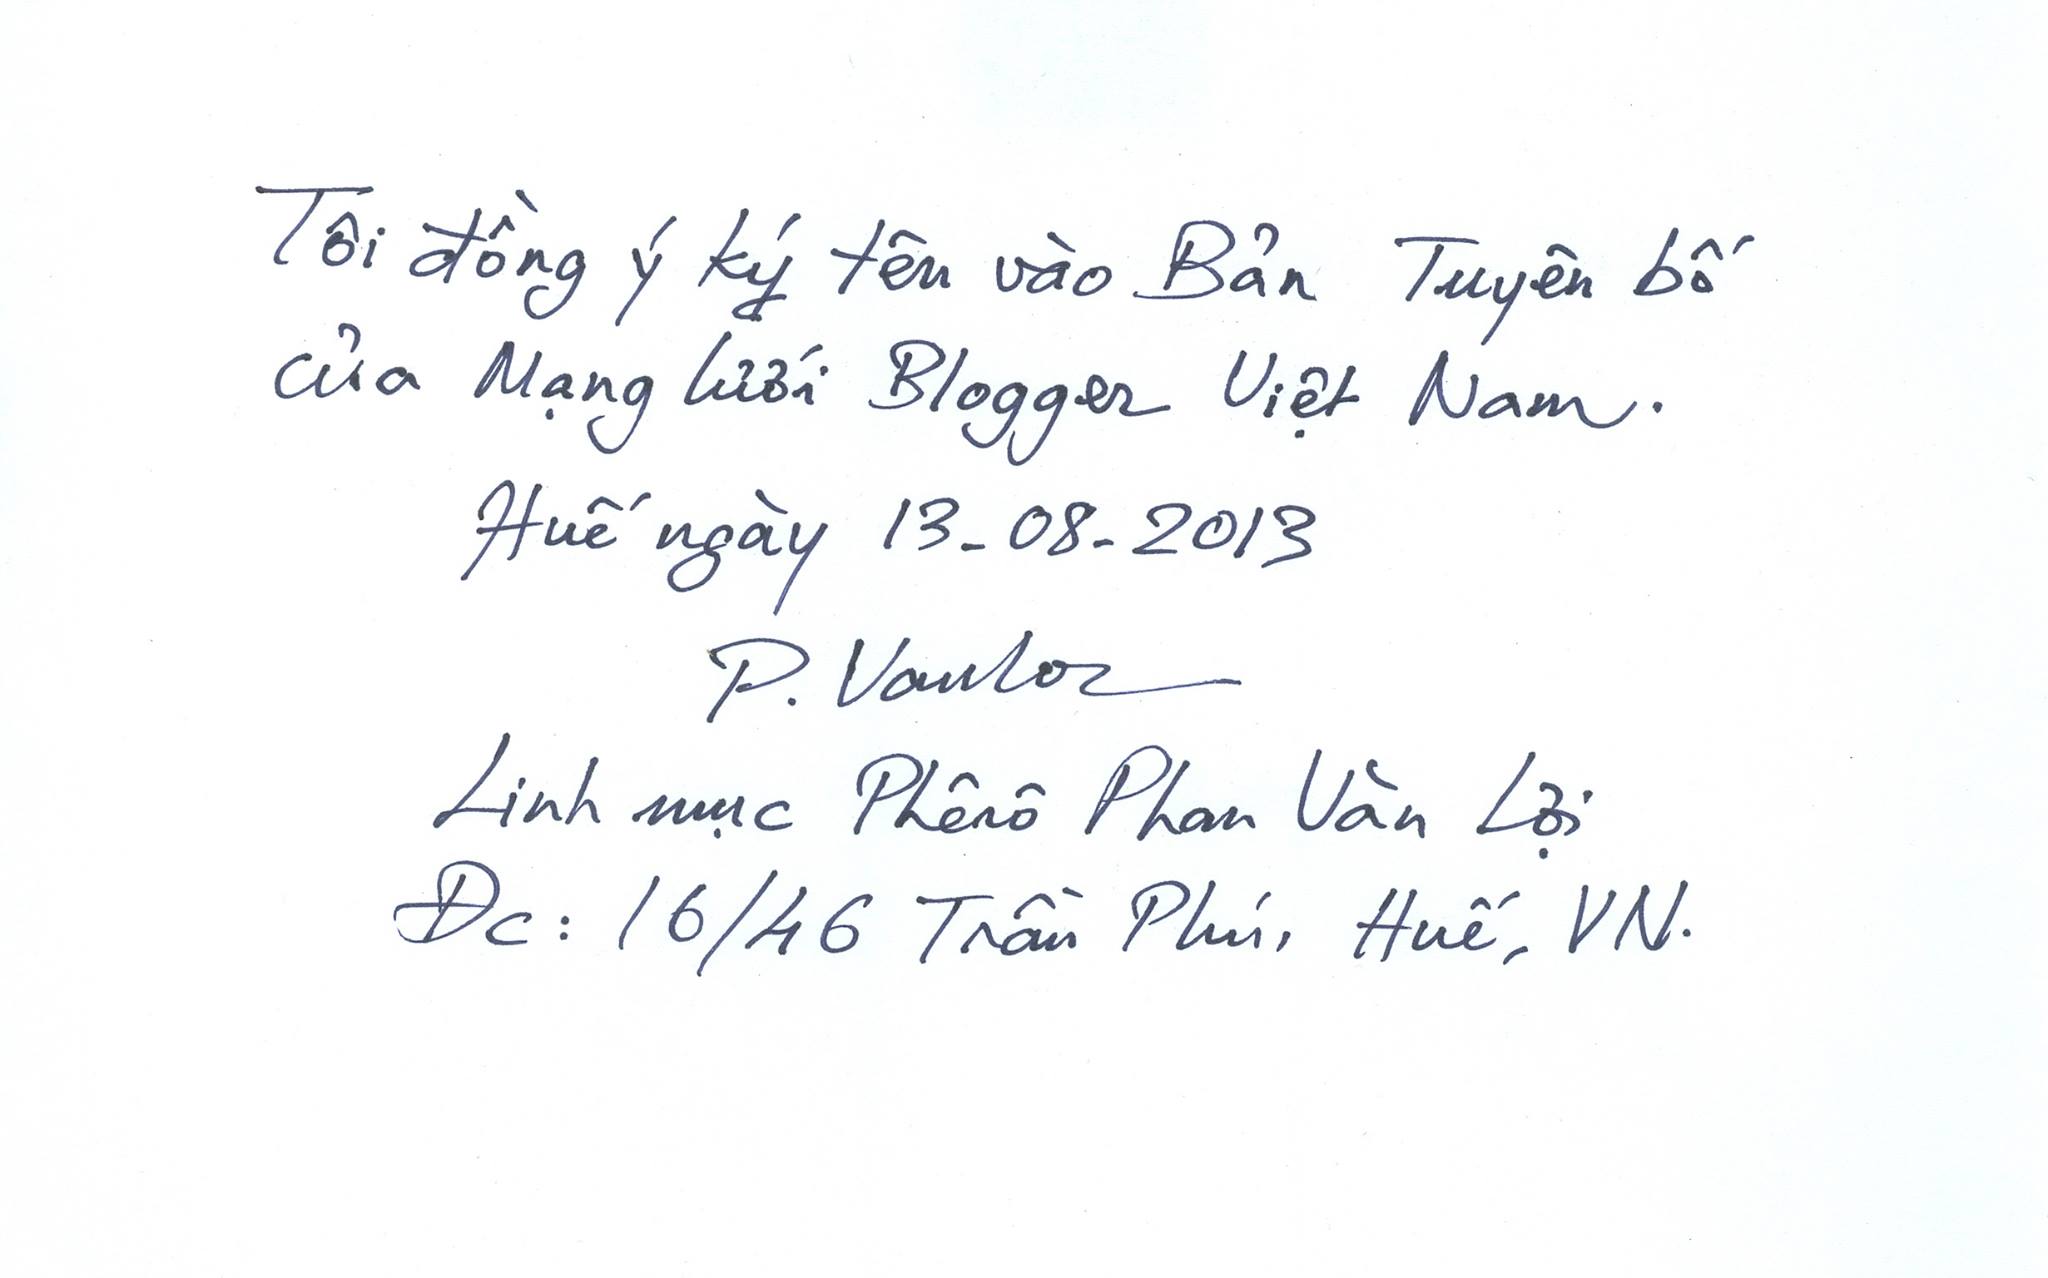 Tôi đồng ý ký tên vào Bản Tuyên bố
của Mạng lưới Blogger Việt Nam.
Huế ngày 13-08-2013
P. Vanloi
Linh mục Phêrô Phan Văn Lợi
Đc: 16/46 Trần Phú, Huế, VN.